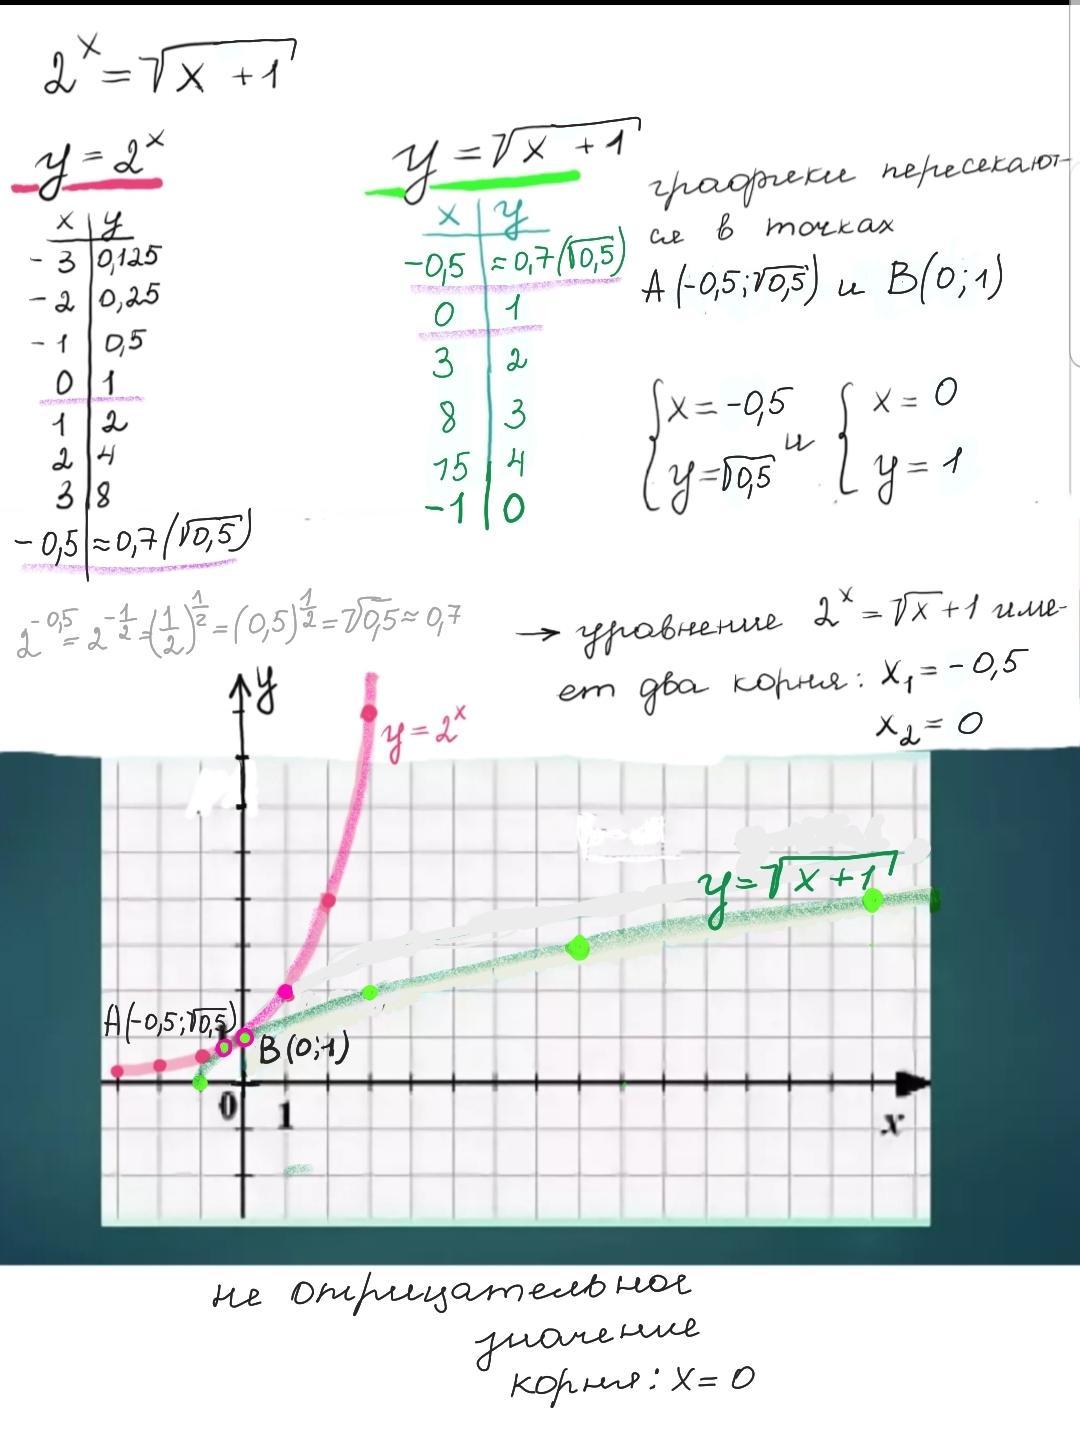 2ˣ = √(x + 1)
y = 2ˣ
x | y
- 3 | 0,125
- 2 | 0,25
- 1 | 0,5
0 | 1
1 | 2
2 | 4
3 | 8
- 0,5 | ≈ 0,7 (√0,5)
y = √(x + 1)
x | y
-0,5 | ≈ 0,7 (√0,5)
0 | 1
3 | 2
8 | 3
15 | 4
-1 | 0
графики пересекают-
ся в точках
A (-0,5; √0,5) и B (0; 1)
{ x = -0,5 и { x = 0
y = √0,5 y = 1
2^(-0,5) = 2^(-1/2) = (1/2)^(1/2) = (0,5)^(1/2) = √0,5 ≈ 0,7
→ уравнение 2ˣ = √x + 1 име-
ет два корня: x₁ = - 0,5
x₂ = 0
y
y = 2ˣ
y = √(x + 1)
A (-0,5; √0,5)
1
B (0; 1)
0 1
x
не отрицательное
значение
корня: x = 0